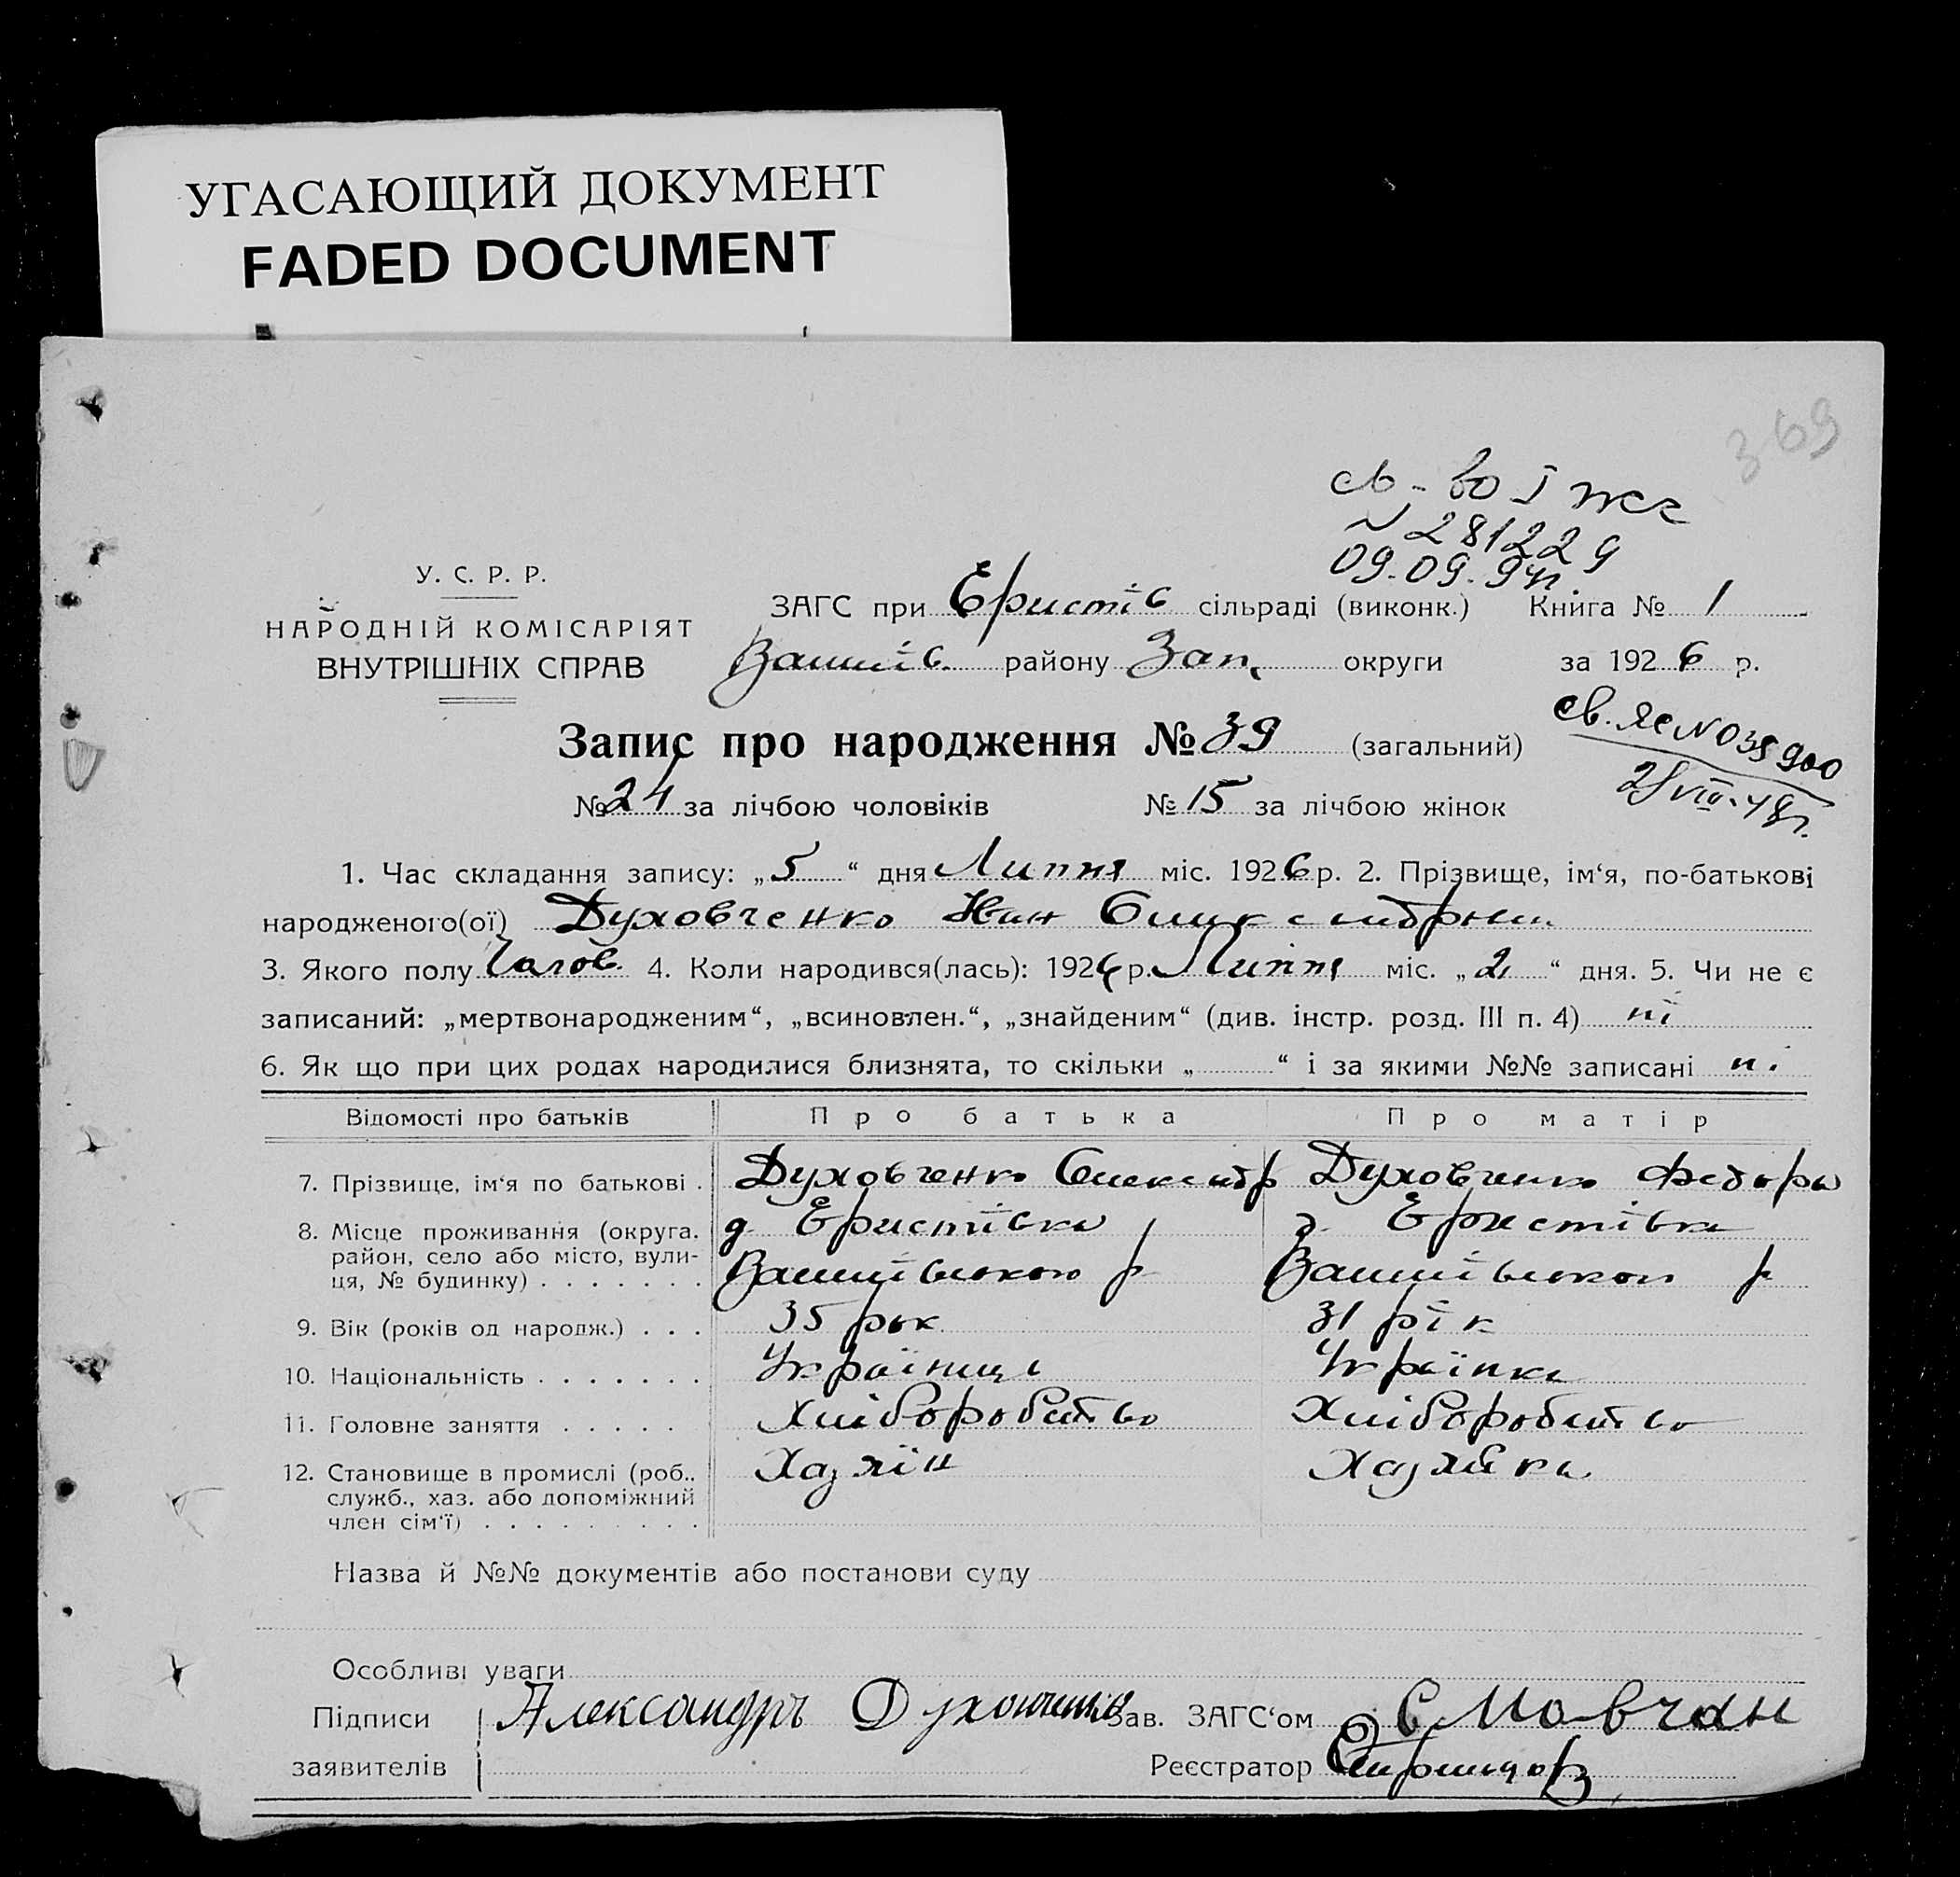 УГАСАЮЩИЙ ДОКУМЕНТ
FADED DOCUMENT
369
св-во I жс
N 281229
09.09.94г.
У. С. Р. Р.
НАРОДНІЙ КОМІСАРІЯТ
ВНУТРІШНІХ СПРАВ
ЗАГС при Еристів сільраді (виконк.) Книга № 1
району Зап. округи за 1926 р.
Запис про народження № 39 (загальний)
св. ЯС N 038900
28 VIII-48г.
№ 24 за лічбою чоловіків № 15 за лічбою жінок
1. Час складання запису: „5“ дня Липня міс. 1926 р. 2. Прізвище, ім‘я, по-батькові
народженого(ої) Духовченко Иван
3. Якого полу Чолов. 4. Коли народився(лась): 1926 р. Липня міс. „2“ дня. 5. Чи не є
записаний: „мертвонародженим“, „всиновлен.“, „знайденим“ (див. інстр. розд. III п. 4) ні
6. Як що при цих родах народилися близнята, то скільки „ “ і за якими №№ записані ні
Відомості про батьків Про батька Про матір
7. Прізвище, ім‘я по батькові . Духовченко Олександр Духовченко Федора
8. Місце проживання (округа, д. Еристівка д. Еристівка
район, село або місто, вули-
ця, № будинку) . . . . . . . р р
9. Вік (років од народж.) . . . 35 рок 31 рік
10. Національність . . . . . . . Українець Українка
11. Головне заняття . . . . . Хліборобство Хліборобство
12. Становище в промислі (роб., Хазяїн Хазяйка
служб., хаз. або допоміжний
член сім‘ї) . . . . . . . . .
Назва й №№ документів або постанови суду
Особливі уваги
Підписи Александръ Духовченко Зав. ЗАГС‘ом Мовчан
заявителів Реєстратор